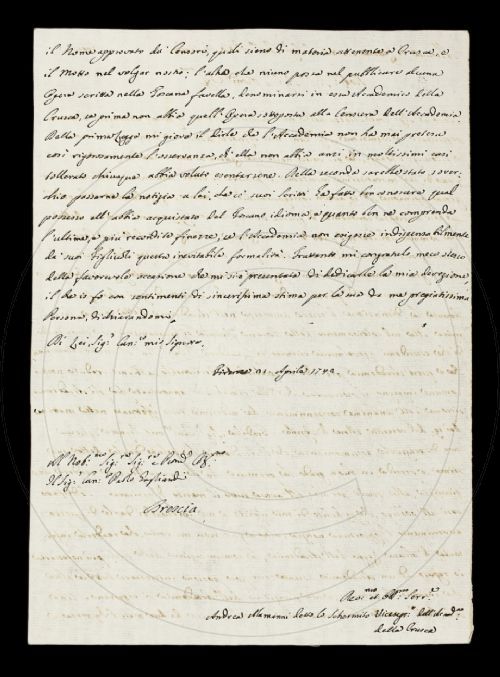 il Nome approvato da' Censori, quali sieno di materia attenente a Crusca, e
il Motto nel volgar nostro: l'altra, che niuno possa nel pubblicare alcuna
Opera scritta nella Toscana favella, denominarsi in essa Accademico della
Crusca, se prima non abbia quell'Opera sottoposta alla Censura dell'Accademia.
Della prima Legge mi giova il dirle che l'Accademia non ha mai preteso
così rigorosamente l'osservanza, ch'ella non abbia anzi in moltissimi casi
tollerato chiunque abbia voluto esentarsene. Della seconda sarebbe stato sover-
chio passarne la notizia a lei, che co' suoi scritti ha fatto ben conoscere qual
possesso ell'abbia acquistato del Toscano idioma, e quanto ben ne comprenda
l'ultime, e più recondite finezze, se l'Accademia non esigesse indispensabilmente
da' suoi Figliuoli questa inevitabile formalità. Frattanto mi congratulo meco stesso
della favorevole occasione che mi si è presentata di dedicarle la mia devozione,
il che io fo con sentimenti di sincerissima stima per la sua da me pregiatissima
Persona, dichiarandomi
Di Lei, Sig.r Can.co mio Signore.
Firenze Aprile
Al Nob. Sig. Sig.
Il Sig. Can. Paolo Gagliardi
Brescia.
Andrea Alamanni detto lo Schermito Vicesegr. dell'Accad.
della Crusca